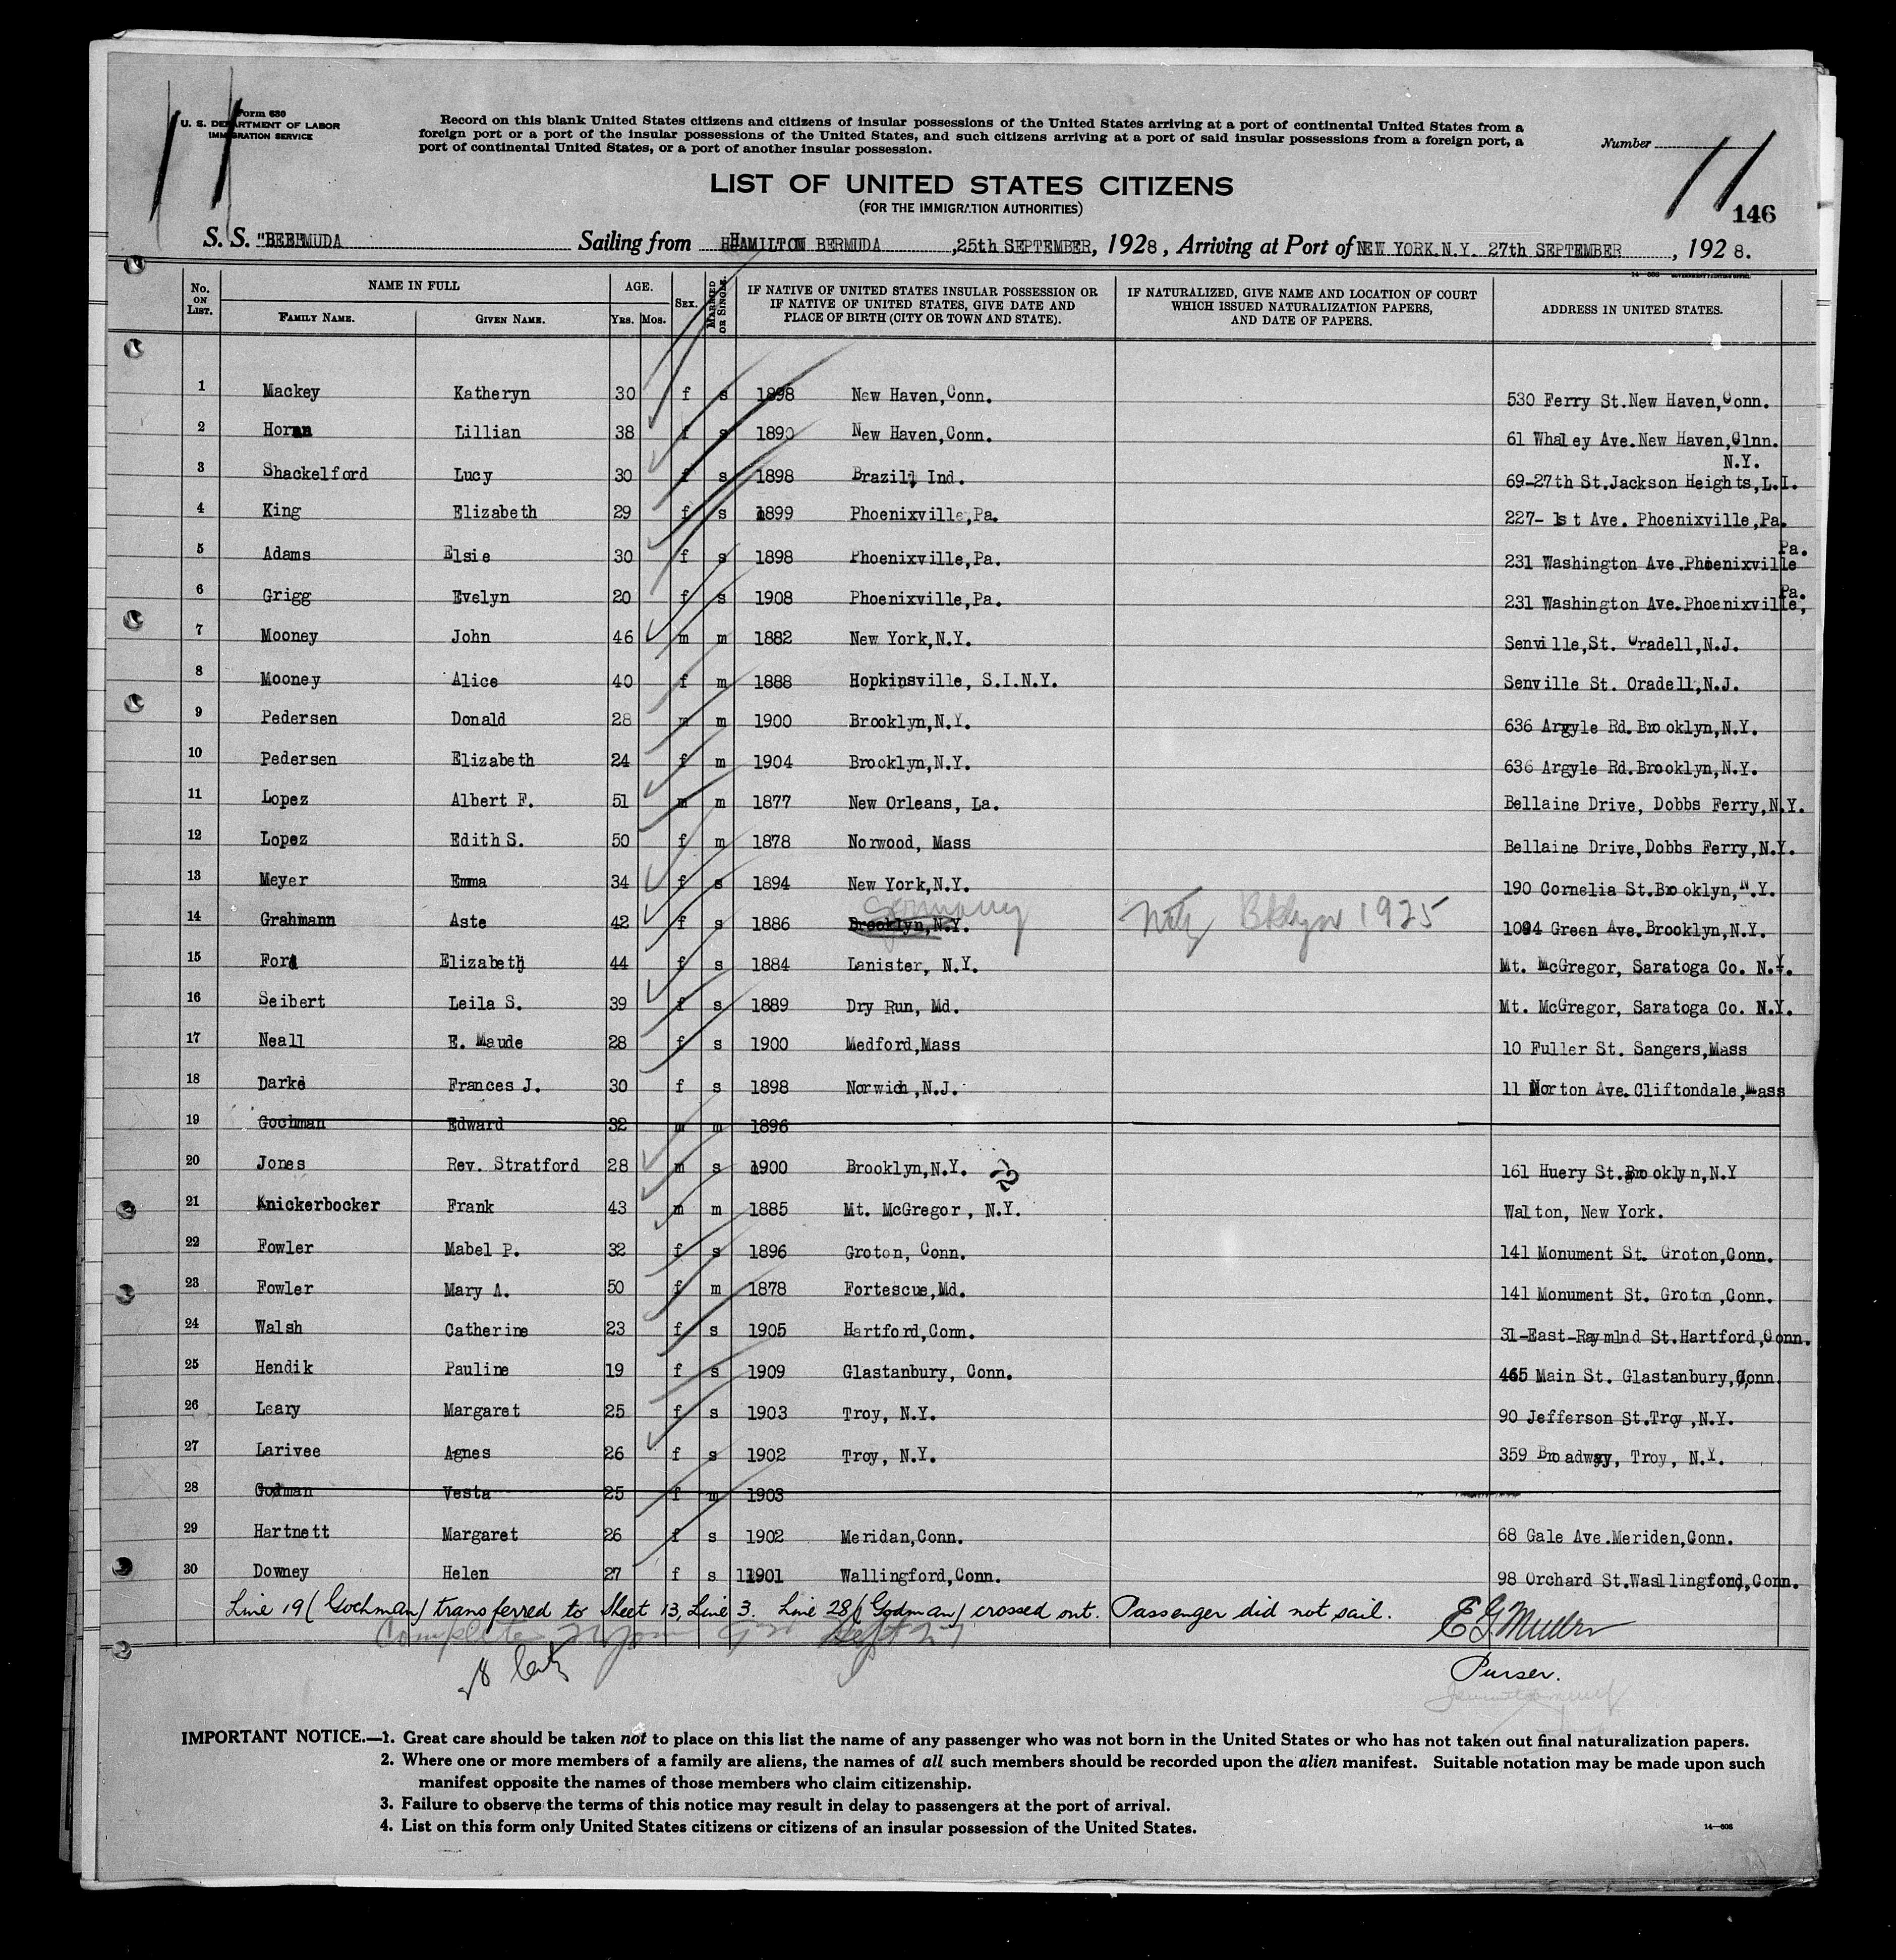 Form 630
U. S. DEPARTMENT OF LABOR
IMMIGRATION SERVICE
Record on this blank United States citizens and citizens of insular possessions of the United States arriving at a port of continental United States from a
foreign port or a port of the insular possessions of the United States, and such citizens arriving at a port of said insular possessions from a foreign port, a
port of continental United States, or a port of another insular possession.
Number
11
11
146
LIST OF UNITED STATES CITIZENS
(FOR THE IMMIGRATION AUTHORITIES)
S. S. "BERMUDA Sailing from HAMILTON BERMUDA, 25th SEPTEMBER, 1928, Arriving at Port of NEW YORK.N.Y. 27th SEPTEMBER, 1928.
No. ON LIST. NAME IN FULL FAMILY NAME. GIVEN NAME. AGE. YRS. MOS. SEX. MARRIED OR SINGLE. IF NATIVE OF UNITED STATES INSULAR POSSESSION OR IF NATIVE OF UNITED STATES, GIVE DATE AND PLACE OF BIRTH (CITY OR TOWN AND STATE). IF NATURALIZED, GIVE NAME AND LOCATION OF COURT WHICH ISSUED NATURALIZATION PAPERS, AND DATE OF PAPERS. ADDRESS IN UNITED STATES.
1 Mackey Katheryn 30 f s 1898 New Haven,Conn. 530 Ferry St.New Haven,Conn.
2 Horan Lillian 38 f s 1890 New Haven,Conn. 61 Whaley Ave.New Haven,Clnn.
3 Shackelford Lucy 30 f s 1898 Brazil, Ind. 69-27th St.Jackson Heights,L.I. N.Y.
4 King Elizabeth 29 f s 1899 Phoenixville,Pa. 227- 1st Ave. Phoenixville,Pa.
5 Adams Elsie 30 f s 1898 Phoenixville,Pa. 231 Washington Ave.Phoenixville Pa.
6 Grigg Evelyn 20 f s 1908 Phoenixville,Pa. 231 Washington Ave.Phoenixville, Pa.
7 Mooney John 46 m m 1882 New York,N.Y. Senville,St. Oradell,N.J.
8 Mooney Alice 40 f m 1888 Hopkinsville, S.I.N.Y. Senville St. Oradell,N.J.
9 Pedersen Donald 28 m m 1900 Brooklyn,N.Y. 636 Argyle Rd.Brooklyn,N.Y.
10 Pedersen Elizabeth 24 f m 1904 Brooklyn,N.Y. 636 Argyle Rd.Brooklyn,N.Y.
11 Lopez Albert F. 51 m m 1877 New Orleans, La. Bellaine Drive, Dobbs Ferry,N.Y.
12 Lopez Edith S. 50 f m 1878 Norwood, Mass Bellaine Drive,Dobbs Ferry,N.Y.
13 Meyer Emma 34 f s 1894 New York,N.Y. 190 Cornelia St.Brooklyn,N.Y.
14 Grahmann Aste 42 f s 1886 Brooklyn,N.Y. Germany Natz Bklyn 1925 1094 Green Ave.Brooklyn,N.Y.
15 Ford Elizabeth 44 f s 1884 Lanister, N.Y. Mt. McGregor, Saratoga Co. N.Y.
16 Seibert Leila S. 39 f s 1889 Dry Run, Md. Mt. McGregor, Saratoga Co. N.Y.
17 Neall E. Maude 28 f s 1900 Medford,Mass 10 Fuller St. Sangers,Mass
18 Darke Frances J. 30 f s 1898 Norwich,N.J. 11 Norton Ave.Cliftondale,Mass
19 Gochman Edward 32 m m 1896
20 Jones Rev. Stratford 28 m s 1900 Brooklyn,N.Y. 161 Huery St.Brooklyn,N.Y
21 Knickerbocker Frank 43 m m 1885 Mt. McGregor, N.Y. Walton, New York.
22 Fowler Mabel P. 32 f s 1896 Groton, Conn. 141 Monument St. Groton,Conn.
23 Fowler Mary A. 50 f m 1878 Fortescue,Md. 141 Monument St. Groton,Conn.
24 Walsh Catherine 23 f s 1905 Hartford,Conn. 31-East-Raymlnd St.Hartford,Conn.
25 Hendik Pauline 19 f s 1909 Glastanbury, Conn. 465 Main St. Glastanbury,Conn.
26 Leary Margaret 25 f s 1903 Troy, N.Y. 90 Jefferson St.Troy,N.Y.
27 Larivee Agnes 26 f s 1902 Troy, N.Y. 359 Broadway, Troy, N.Y.
28 Godman Vesta 25 f m 1903
29 Hartnett Margaret 26 f s 1902 Meridan,Conn. 68 Gale Ave.Meriden,Conn.
30 Downey Helen 27 f s 1901 Wallingford,Conn. 98 Orchard St.Wasllingford,Conn.
Line 19 (Gochman) transferred to Sheet 13, Line 3. Line 28 (Godman) crossed out. Passenger did not sail.
E G Muller
Purser.
IMPORTANT NOTICE.—1. Great care should be taken not to place on this list the name of any passenger who was not born in the United States or who has not taken out final naturalization papers.
2. Where one or more members of a family are aliens, the names of all such members should be recorded upon the alien manifest. Suitable notation may be made upon such
manifest opposite the names of those members who claim citizenship.
3. Failure to observe the terms of this notice may result in delay to passengers at the port of arrival.
4. List on this form only United States citizens or citizens of an insular possession of the United States.
14—608